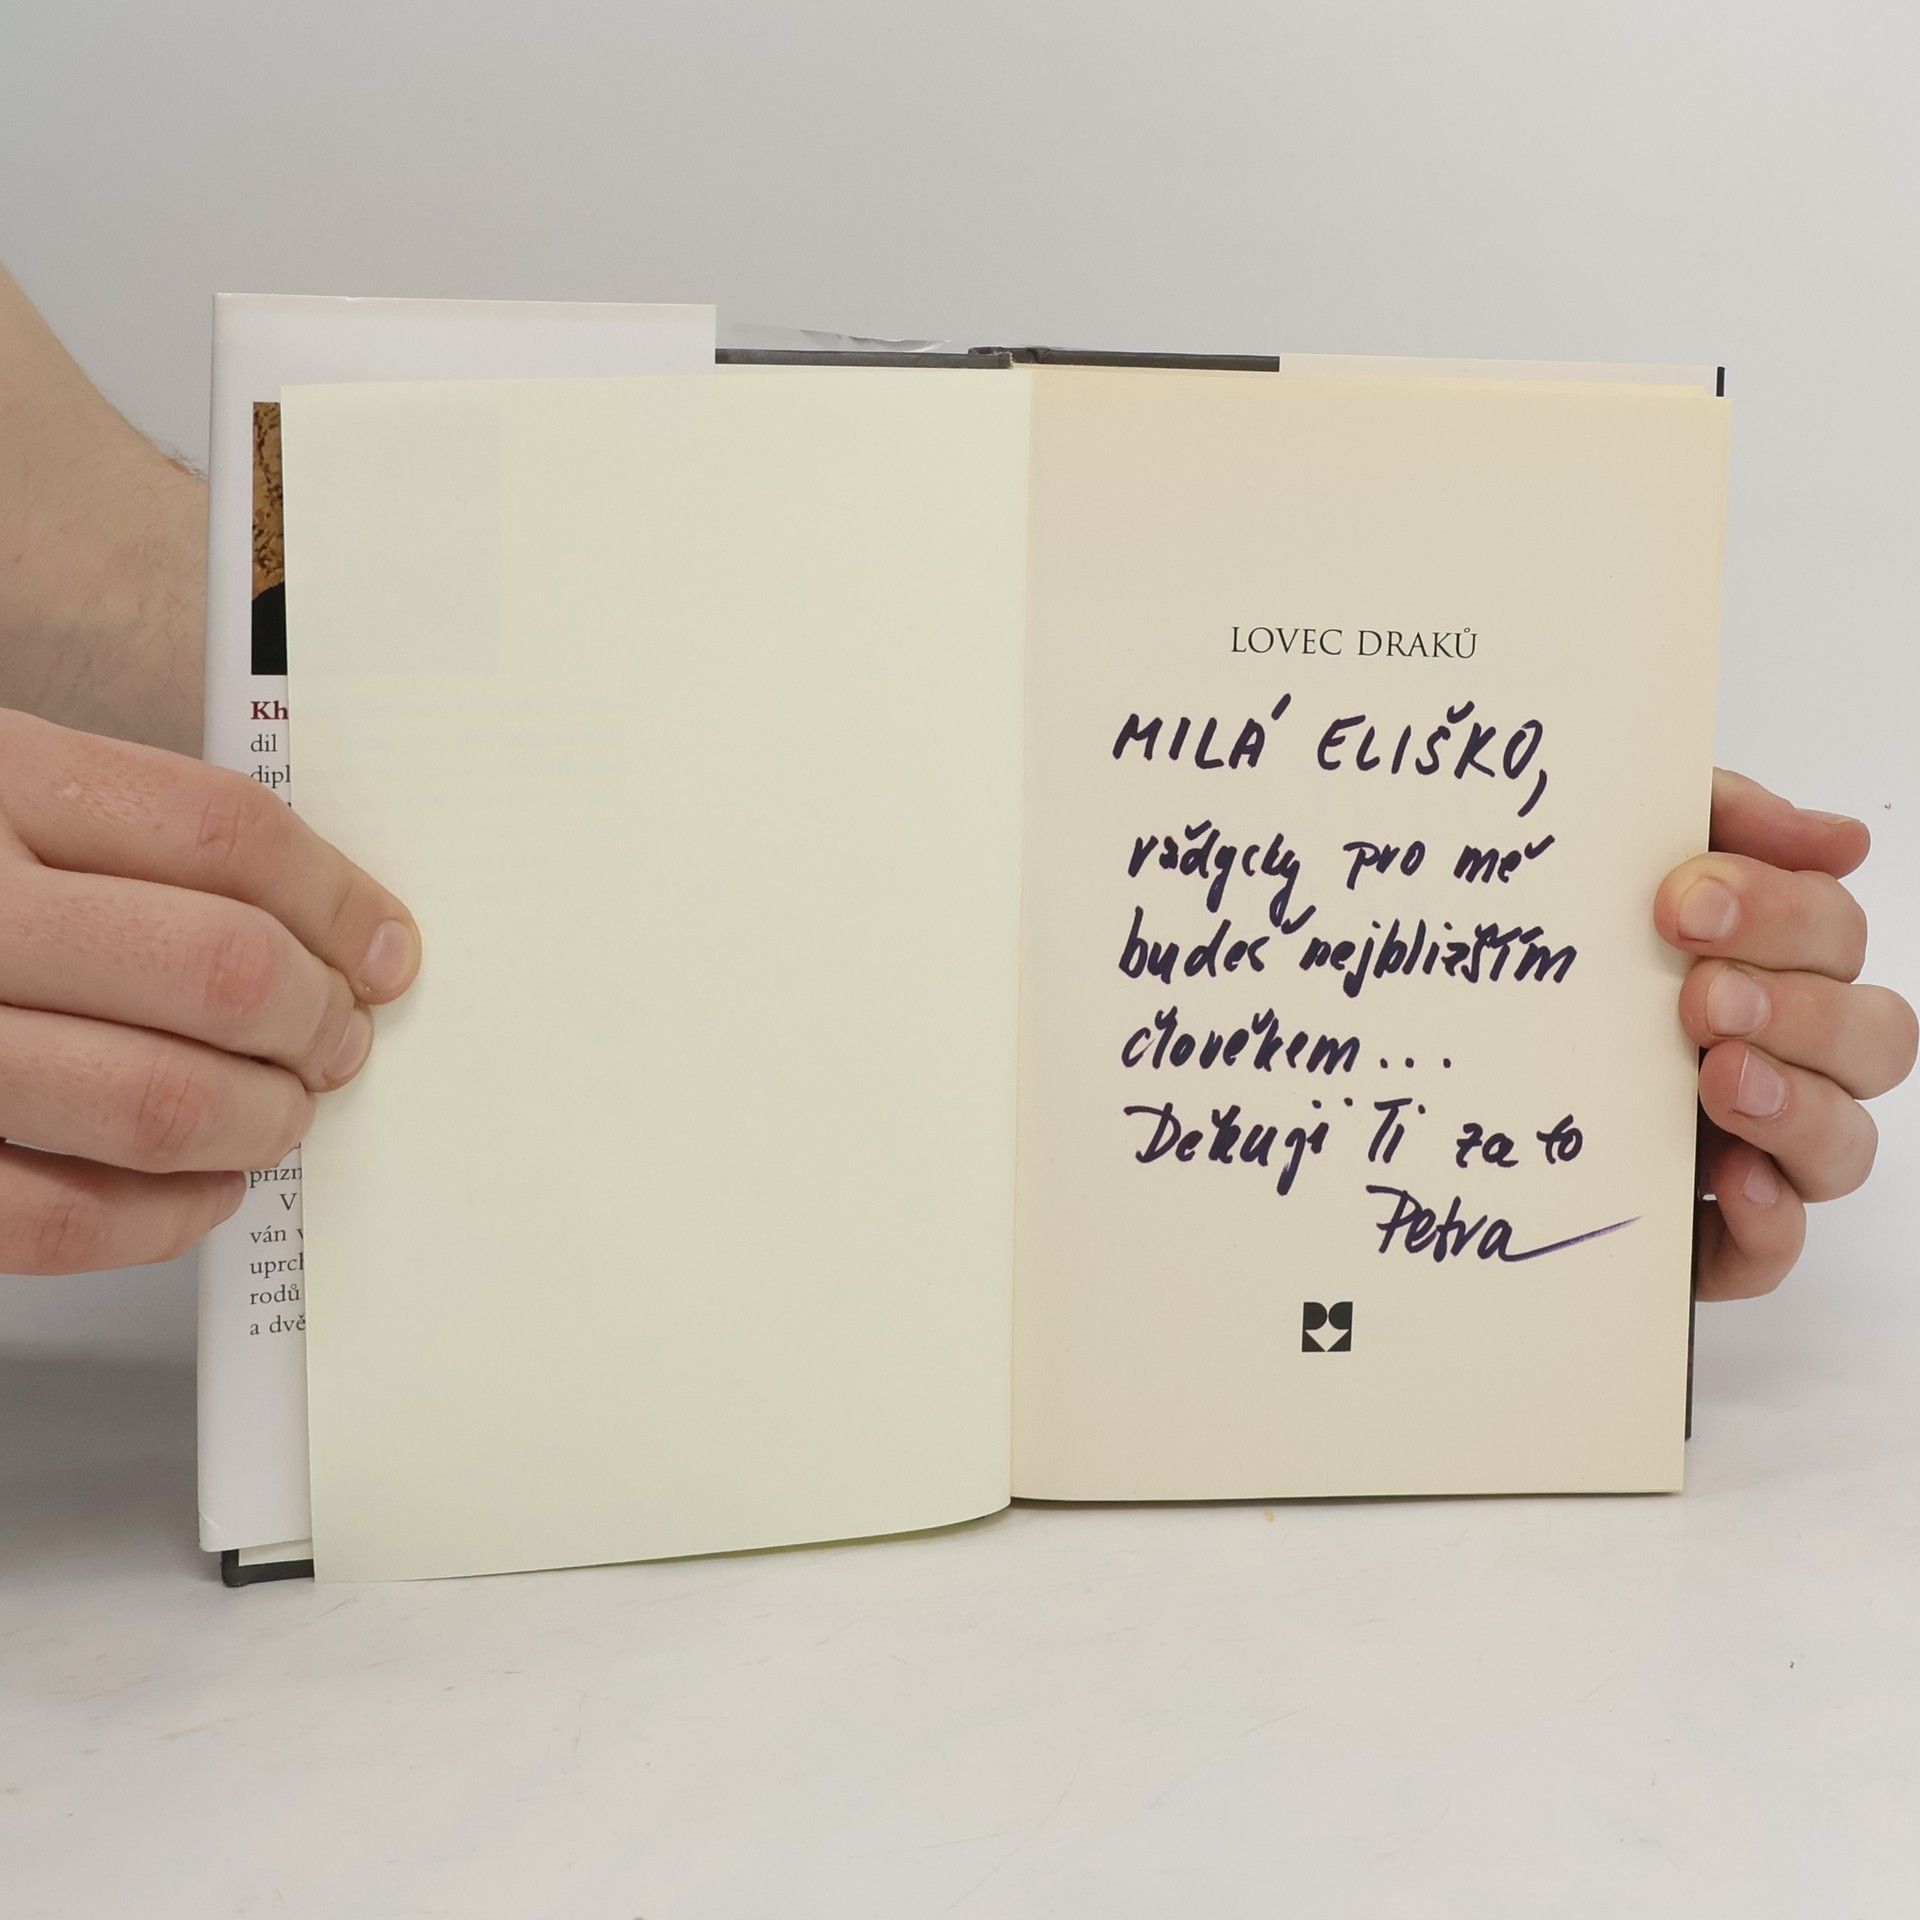 Kh
dil
dipl
přízn
V
ván v
uprch
rodů
a dvě
LOVEC DRAKŮ
MILÁ ELIŠKO,
vždycky pro mě
budeš nejbližším
člověkem...
Děkuji Ti za to
Petra